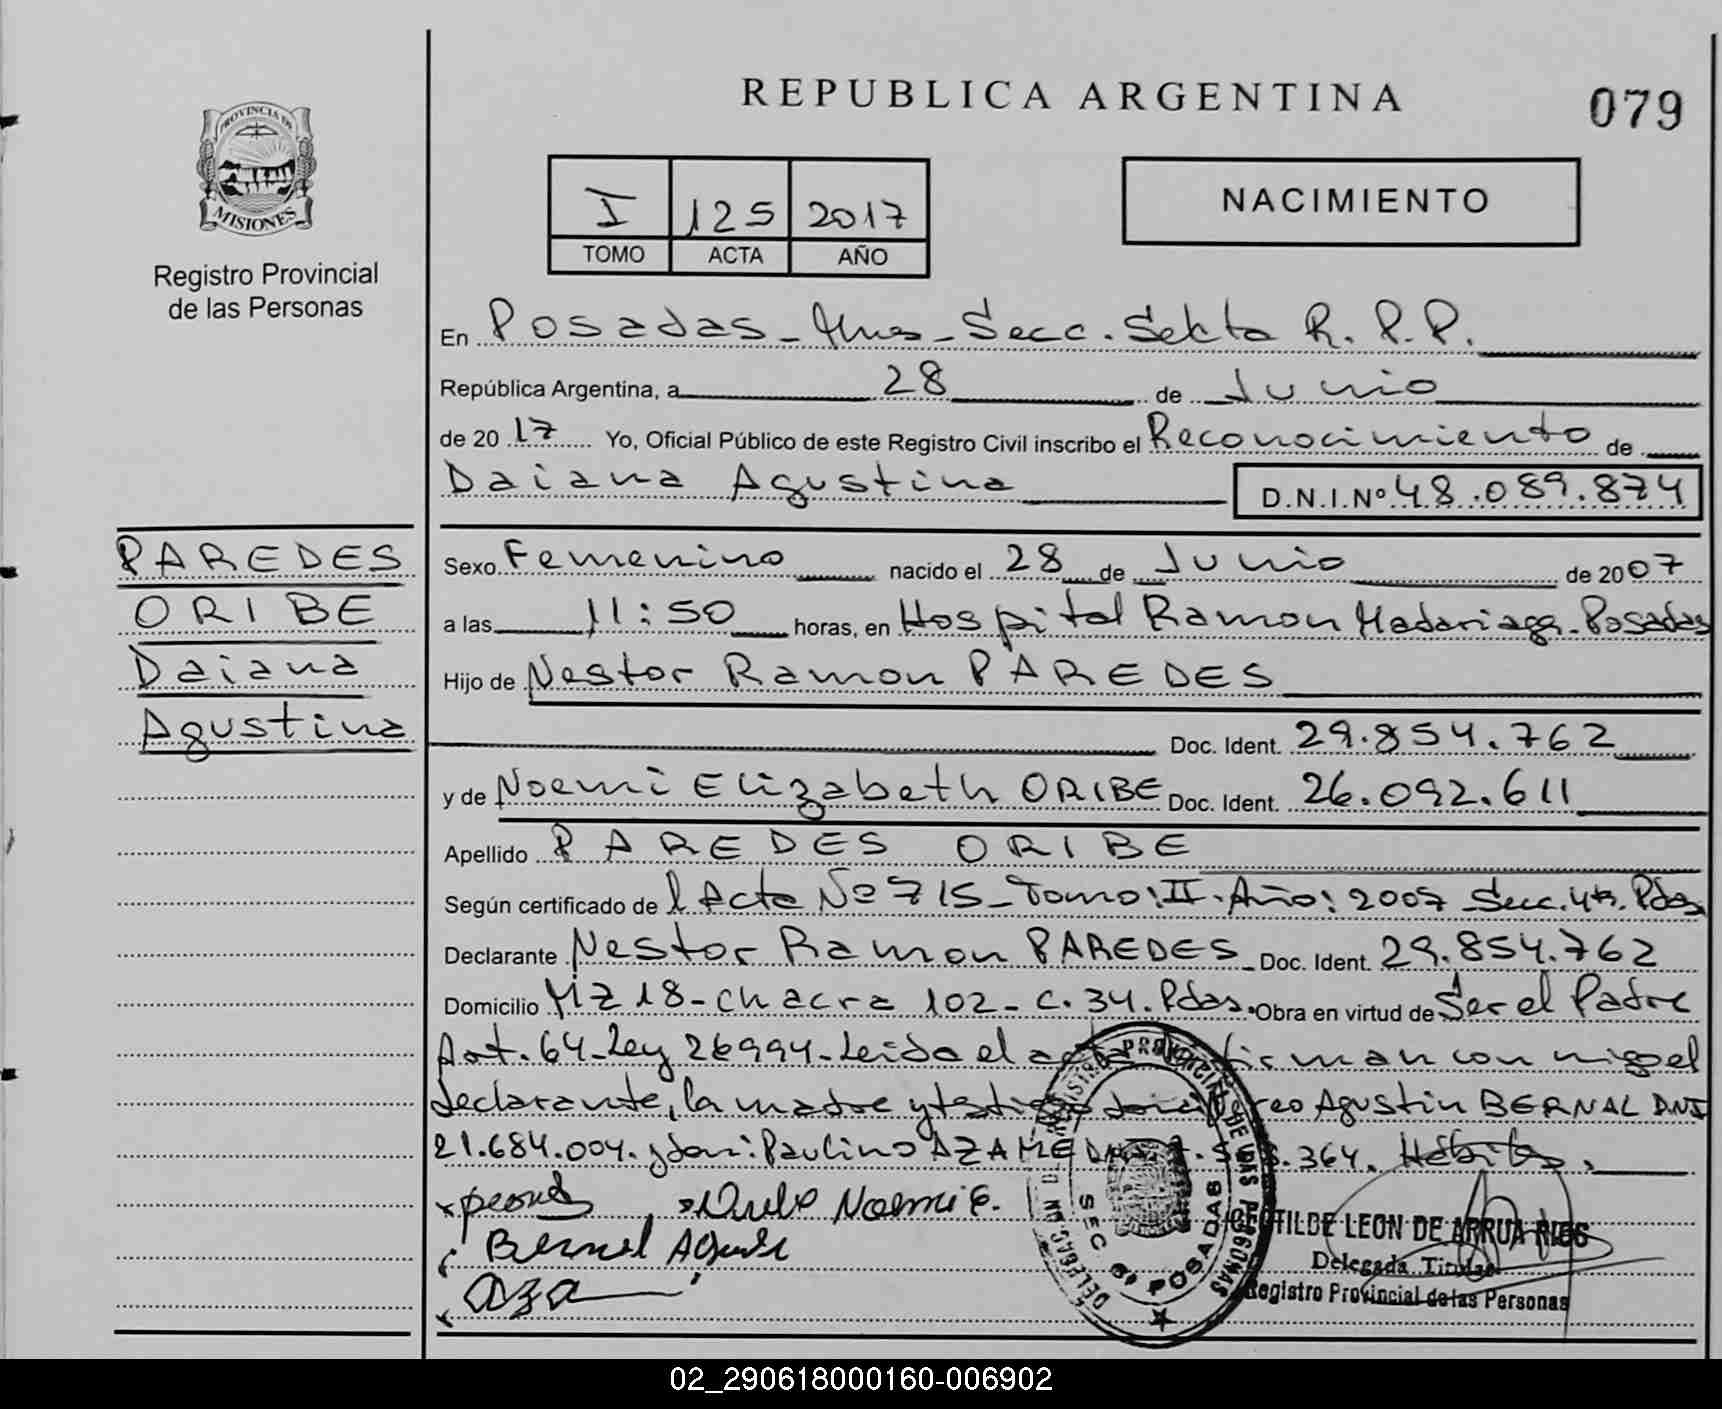 REPUBLICA ARGENTINA
079
PROVINCIA DE
MISIONES
Registro Provincial
de las Personas
I 125 2017
TOMO ACTA AÑO
NACIMIENTO
En Posadas - Mnes - Secc. Sekta R.P.P.
República Argentina, a 28 de Junio
de 2017 Yo, Oficial Público de este Registro Civil inscribo el Reconocimiento de
Daiana Agustina D.N.I.Nº 48.089.874
PAREDES
ORIBE
Daiana
Agustina
Sexo Femenino nacido el 28 de Junio de 2007
a las 11:50 horas, en Hospital Ramon Madariaga - Posadas
Hijo de Nestor Ramon PAREDES
Doc. Ident. 29.854.762
y de Noemi Elizabeth ORIBE Doc. Ident. 26.092.611
Apellido PAREDES ORIBE
Según certificado de l Acta Nº 715 - Tomo: II - Año: 2007 Secc. 4ta. Pdas
Declarante Nestor Ramon PAREDES - Doc. Ident. 29.854.762
Domicilio Mz 18 - chacra 102 - C. 34. Pdas. Obra en virtud de Ser el Padre
Art. 64 - Ley 26994 - Leida el acta firman con migo el
declarante, la madre y testigo Agustin BERNAL DNI
21.684.004. y don: Paulino AZAME 364. Hábiles.
Noemi E.
Bernal
aza
REGISTRO PROVINCIAL DE LAS PERSONAS
DELEGACION
SEC 6ª POSADAS
CLOTILDE LEON DE ARRUA RIOS
Delegada Titular
Registro Provincial de las Personas
02_290618000160-006902